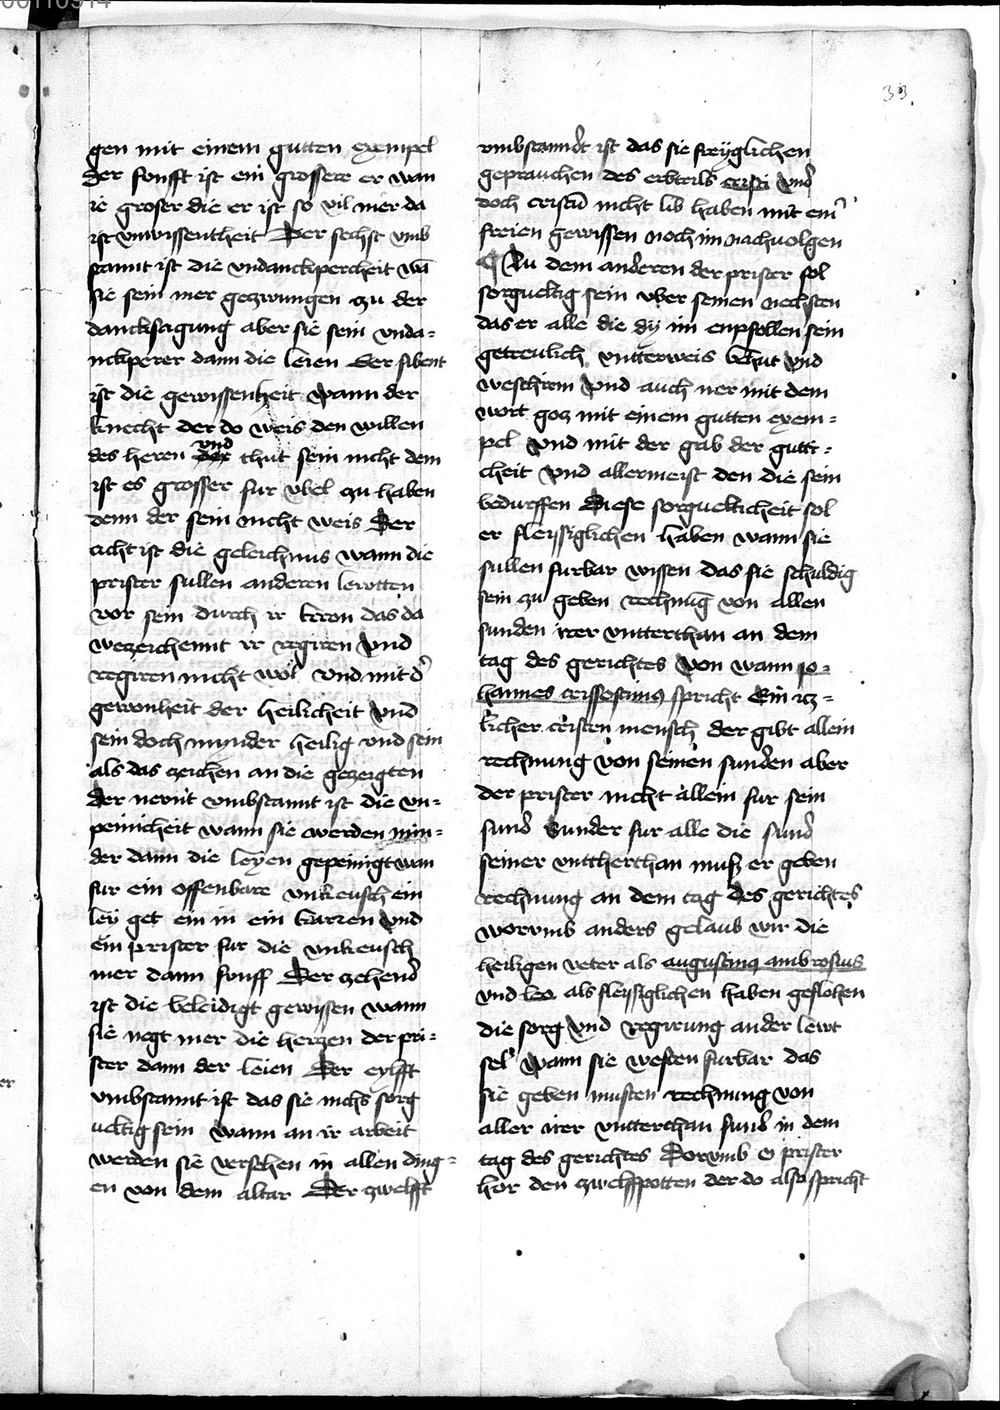 33.
gen mit einem gutten exempel
Der fonfft ist ein grosserr er wan
ie groser die er ist so vil mer da
ist vnwissentheit Der sechst vmb
stannt ist die vndanckpercheit wā
sie sein mer gezwungen zu der
dancksagung aber sie sein vnda-
nckperer dann die leien Der sibent
ist die gewissenheit wann der
knecht der do weis den willen
des heren vnd thut sein nicht dem
ist es grosser fur vbel zu haben
denn der sein nicht weis Der
acht ist die geleichnus wann die
prister sullen anderen lewtten
vor sein durch ir kron das da
wezeichennt ir regiren vnd
regiren nicht wol vnd mit d̕
gewonheit der heilicheit vnd
sein doch mynder heilig vnd sein
als das zeichen an die gezeigten
Der newnt vmbstannt ist die vn-
peinicheit wann sie werden myn-
der dann die leyen gepeinigt wan
fur ein offenbare vnkeusch ein
ley get ein in ein karren vnd
ein prister fur die vnkeusch
mer dann fonff Der zehend
ist die beleidigt gewissen wann
sie negt mer die herzen der pri-
ster dann der leien Der eylfft
vmbstannt ist das sie nichs sorg
ueltig sein wann an ir arbeit
werden sie versehen in allen ding-
en von dem altar Der zwelfft
vmbstanndt ist das sie freyglichen
geprauchen des erbteils cristi vnd
doch cristū nicht lib haben mit em̄
freien gewissen noch im nachuolgen
¶ Zu dem anderen der prister sol
sorgueltig sein vber seinen nechsten
das er alle die dy im enpfollen sein
getreulich vntterweis behut vnd
weschirm vnd auch ner mit dem
wort goz mit einem gutten exem-
pel vnd mit der gab der gutti-
cheit vnd allermeist den die sein
bedurffen Diese sorgueltickeit sol
er fleyssiglichen haben wann sie
sullen furbar wissen das sie schuldig
sein zu geben rechnūg von allen
sunden irer vntterthan an dem
tag des gerichtes von wann jo-
hannes crissostimus spricht Ein itz-
licher cristen mensch der gibt allein
rechnung von seinen sunden aber
der prister nicht allein fur sein
sund sunder fur alle die sund
seiner vnttherthan muß er geben
rechnung an dem tag des gerichtes
worvmb anders gelaub wir die
heiligen veter als augustinus ambrosius
vnd leo als fleyssiglichen haben geflohen
die sorg vnd regirung ander lewt
sel wann sie westen furbar das
sie geben musten rechnung von
aller irer vntterthan sund in dem
tag des gerichtes Dorvmb o prister
hor den zwelffpotten der do also spricht